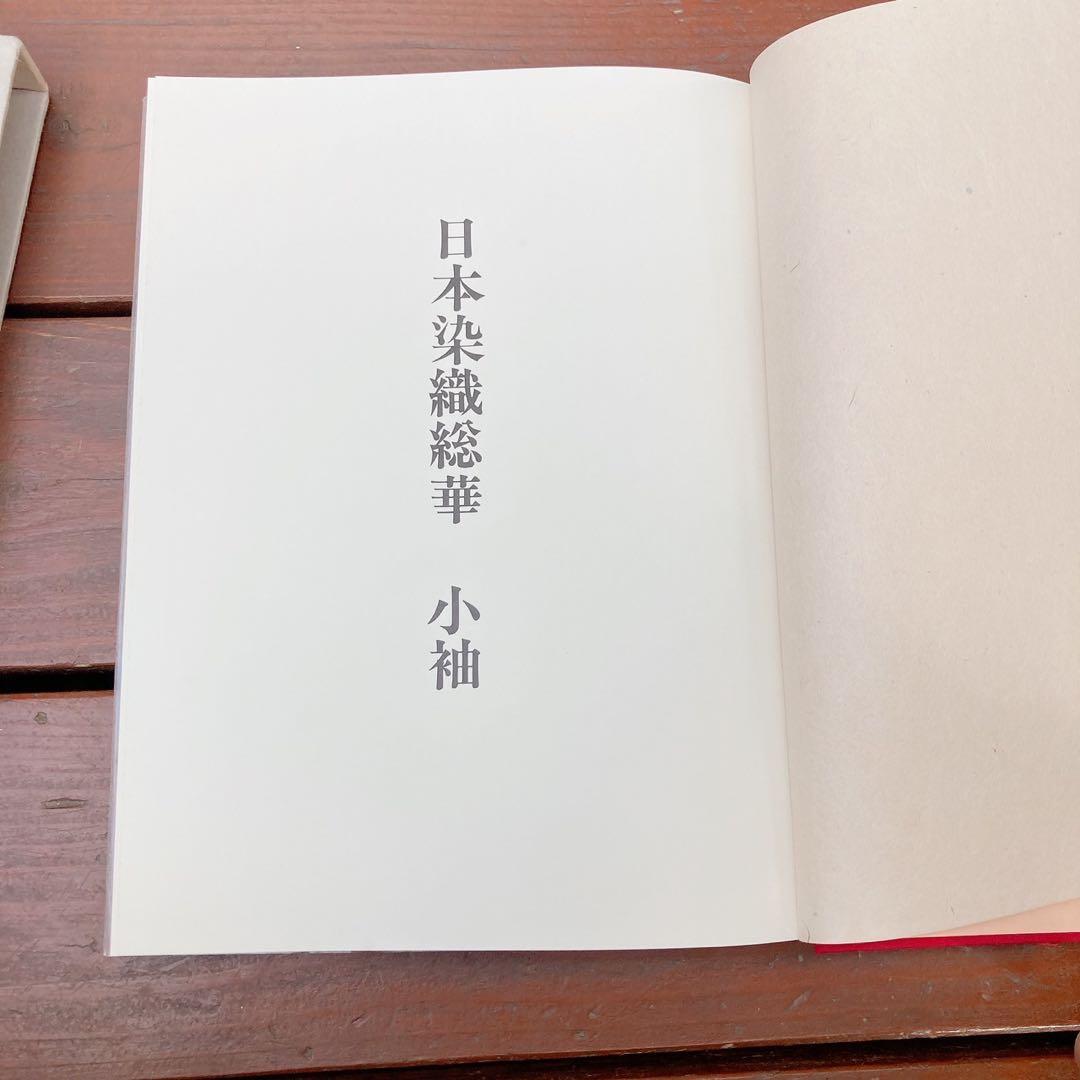 日本染織総華　小袖